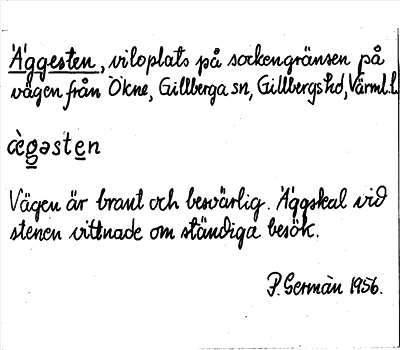 Äggesten, viloplats på sockengränsen på
vägen från Ökne, Gillberga sn, Gillbergs hd, Värml.l.
æ̀gəsten
Vägen är brant och besvärlig. Äggskal vid
stenen vittnade om ständiga besök.
P. Germàn 1956.